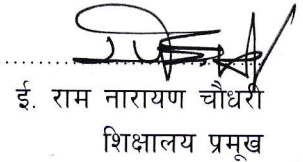 ई. राम नारायण चौधरी
शिक्षालय प्रमूख